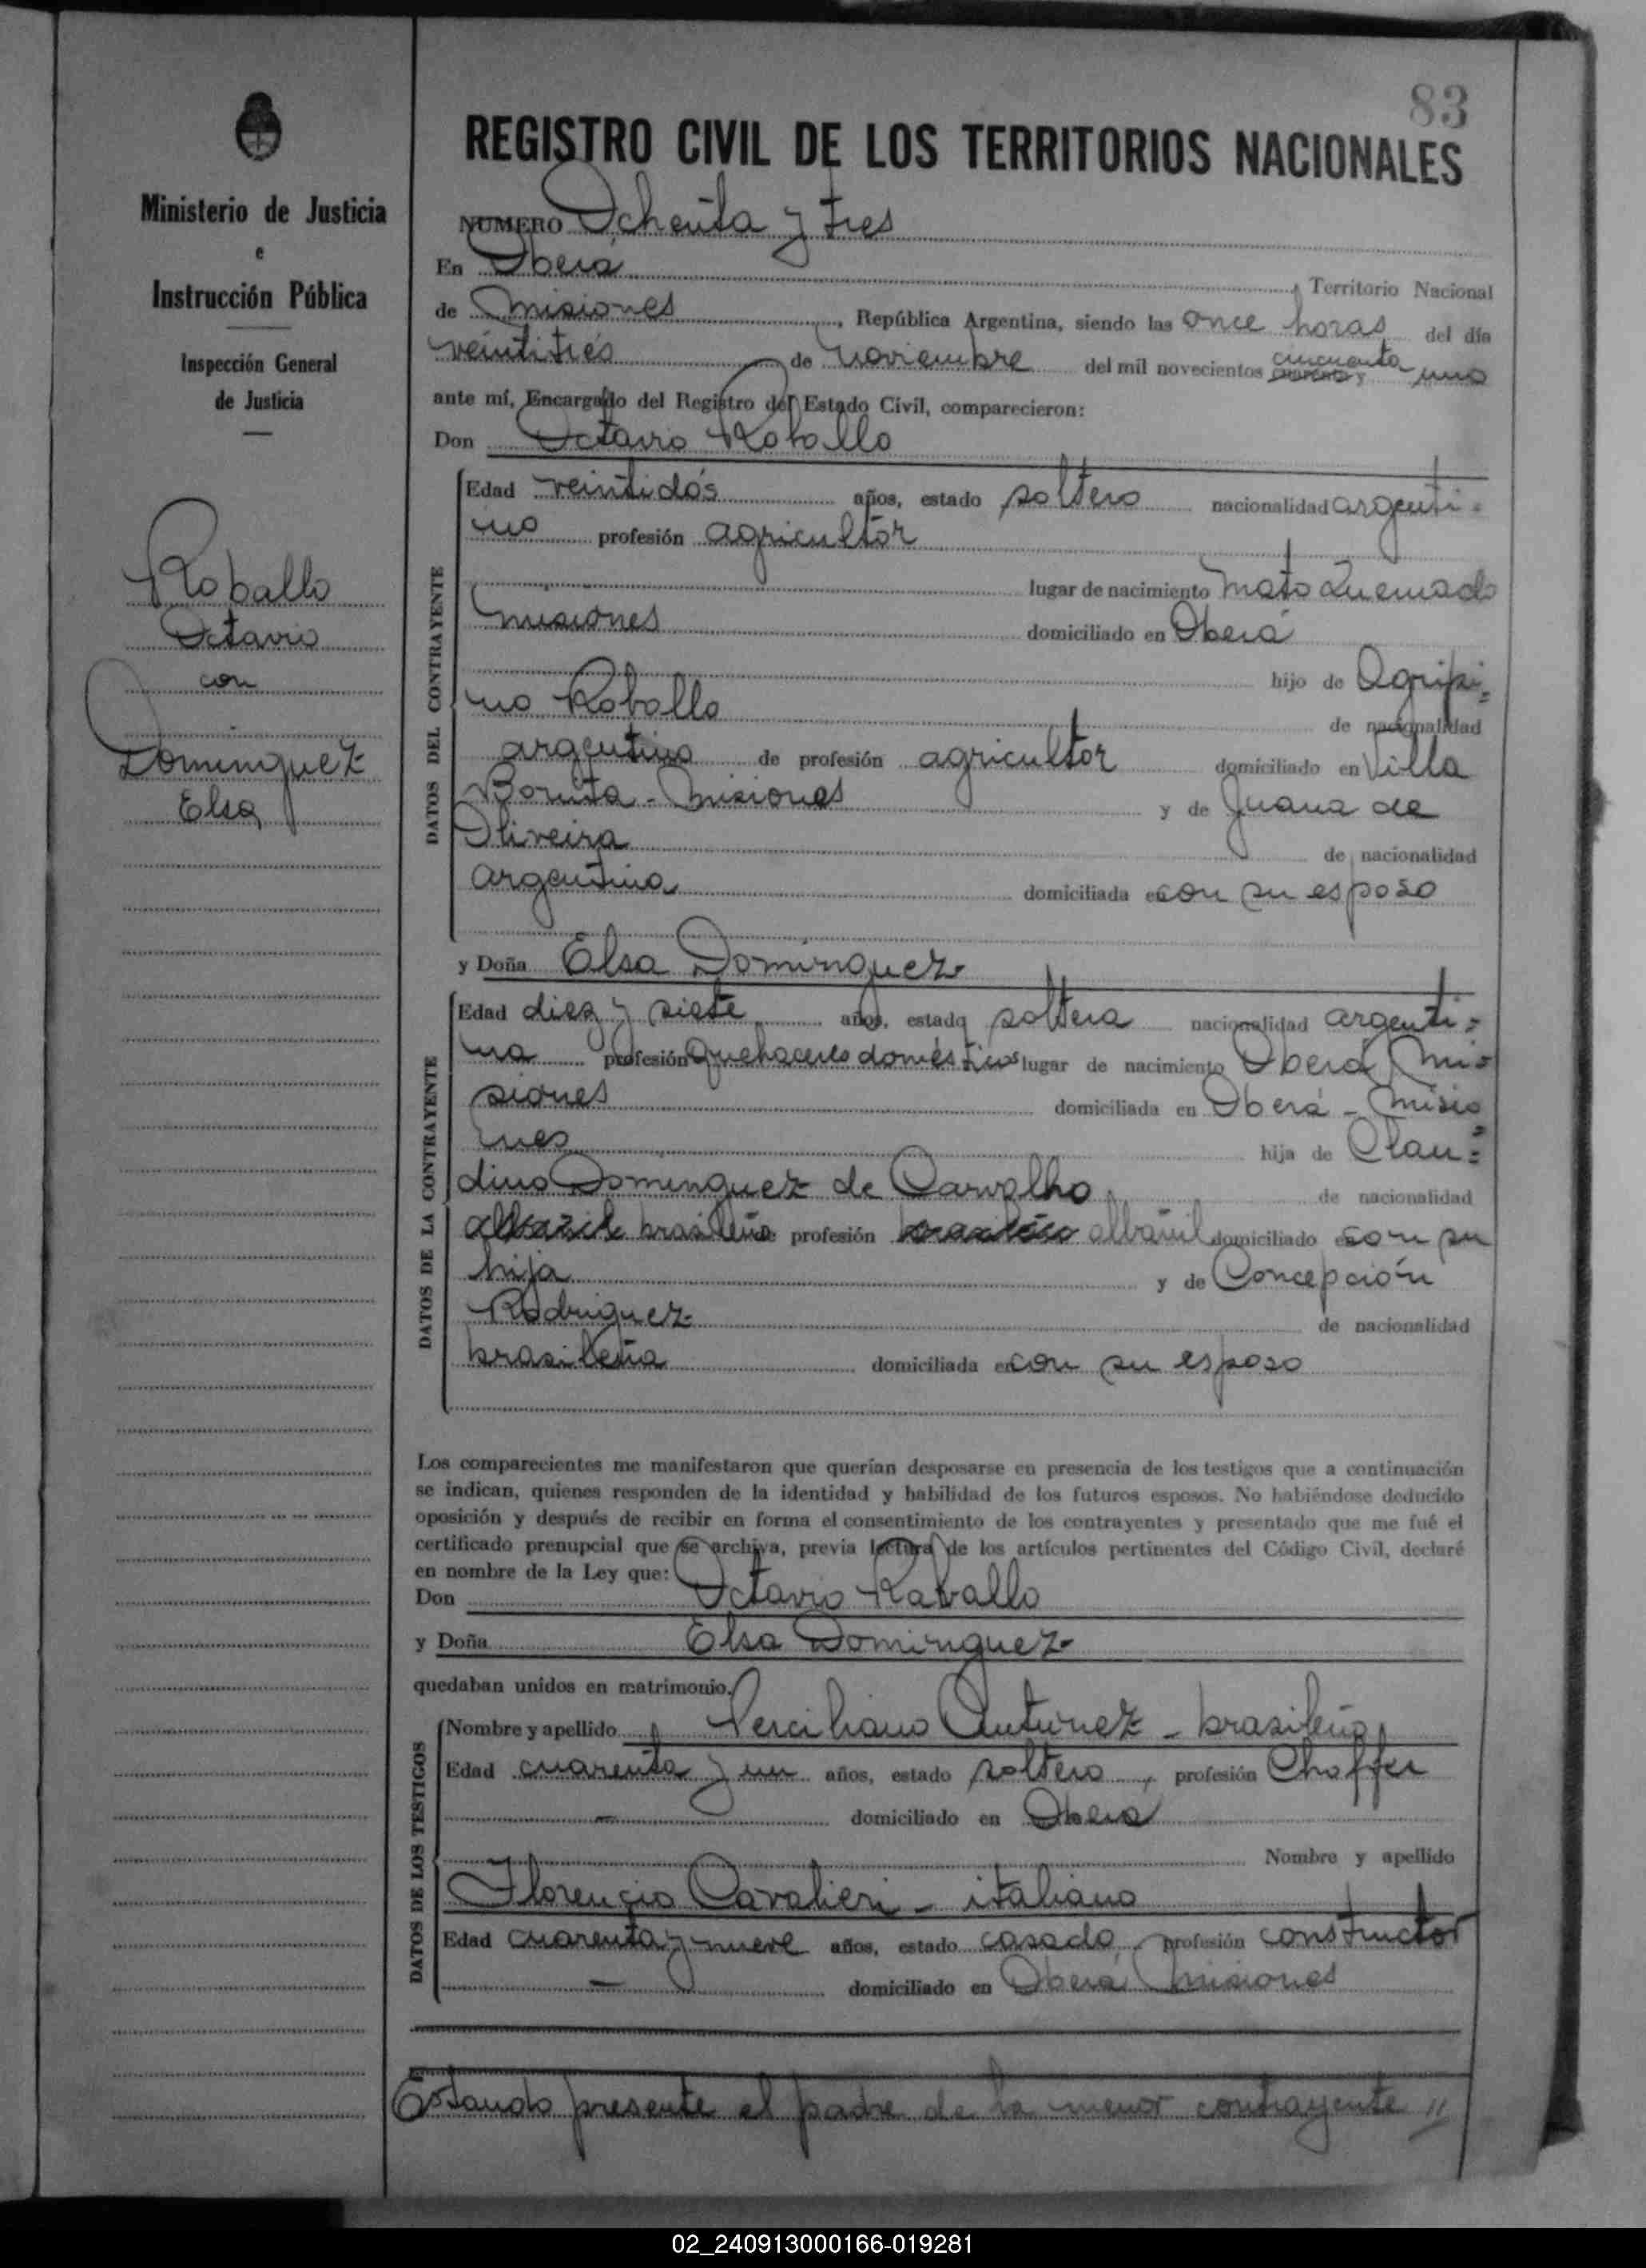 83
Ministerio de Justicia
e
Instrucción Pública
Inspección General
de Justicia
Roballo
Octavio
con
Dominguez
Elsa
REGISTRO CIVIL DE LOS TERRITORIOS NACIONALES
NUMERO Ochenta y tres
En Oberá Territorio Nacional
de Misiones, República Argentina, siendo las once horas del día
veintitrés de noviembre del mil novecientos cincuenta uno
ante mí, Encargado del Registro del Estado Civil, comparecieron:
Don Octavio Roballo
DATOS DEL CONTRAYENTE
Edad veintidós años, estado soltero nacionalidad argenti=
no profesión agricultor
lugar de nacimiento Mato Quemado
Misiones domiciliado en Oberá
hijo de Agripi=
no Roballo de nacionalidad
argentino de profesión agricultor domiciliado en Villa
Bonita - Misiones y de Juana de
Oliveira de nacionalidad
argentina domiciliada en con su esposo
y Doña Elsa Dominguez
DATOS DE LA CONTRAYENTE
Edad diez y siete años, estado soltera nacionalidad argenti=
na profesión Quehaceres domésticos lugar de nacimiento Oberá Mi=
siones domiciliada en Oberá - Misio
nes hija de Clau=
dino Dominguez de Carvalho de nacionalidad
brasileño profesión albañil domiciliado con su
hija y de Concepción
Rodriguez de nacionalidad
brasileña domiciliada en con su esposo
Los comparecientes me manifestaron que querían desposarse en presencia de los testigos que a continuación
se indican, quienes responden de la identidad y habilidad de los futuros esposos. No habiéndose deducido
oposición y después de recibir en forma el consentimiento de los contrayentes y presentado que me fué el
certificado prenupcial que se archiva, previa lectura de los artículos pertinentes del Código Civil, declaré
en nombre de la Ley que:
Don Octavio Raballo
y Doña Elsa Dominguez
quedaban unidos en matrimonio.
DATOS DE LOS TESTIGOS
Nombre y apellido Antunez - brasileño
Edad cuarenta y un años, estado soltero, profesión Choffer
domiciliado en Oberá
Nombre y apellido
Florencio Cavalieri - italiano
Edad cuarenta y nueve años, estado casado, profesión constructor
domiciliado en Oberá Misiones
Estando presente el padre de la menor contrayente //
02_240913000166-019281